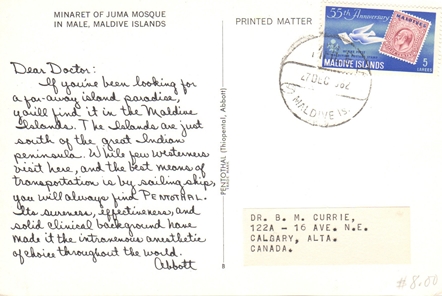 MINARET OF JUMA MOSQUE
IN MALE, MALDIVE ISLANDS
PRINTED MATTER
55th Anniversary
MALDIVES
MALDIVE ISLANDS
5
LAREES
27 DEC 1962
MALDIVE IS.
Dear Doctor:
If you've been looking for
a far-away island paradise,
you'll find it in the Maldive
Islands. The Islands are just
south of the great Indian
peninsula. While few westerners
visit here, and the best means of
transportation is by sailing ships,
you will always find PENTOTHAL.
Its sureness, effectiveness, and
solid clinical background have
made it the intravenous anesthetic
of choice throughout the world.
Abbott
PENTOTHAL (Thiopental, Abbott)
8
DR. B. M. CURRIE,
122A - 16 AVE. N.E.
CALGARY, ALTA.
CANADA.
$8.00